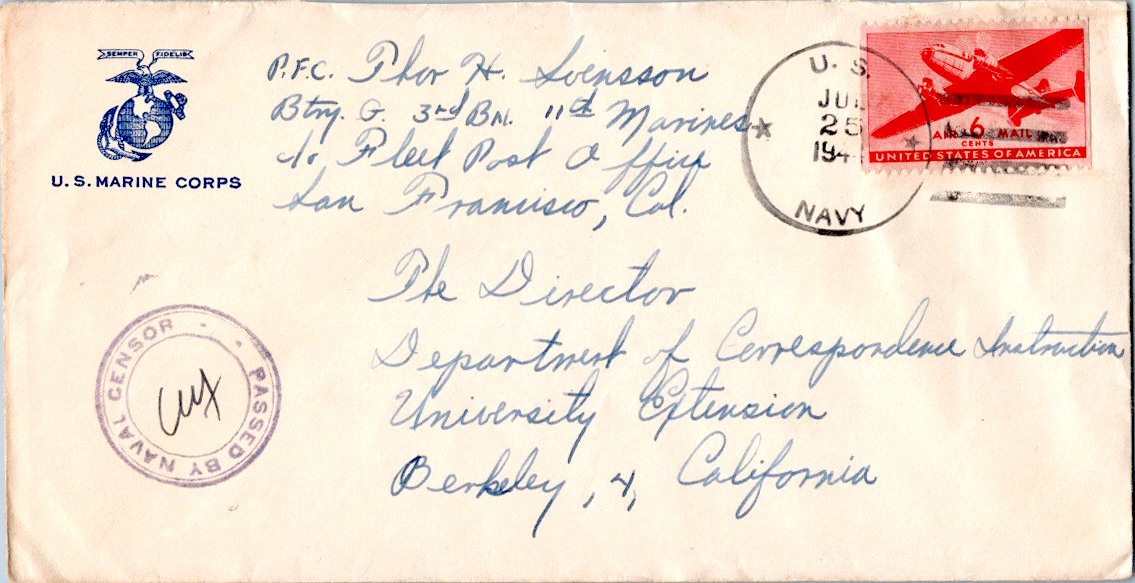 SEMPER FIDELIS
U.S. MARINE CORPS
P.F.C. Thor H. Svensson
Btry. G. 3rd Bn. 11th Marines
c/o Fleet Post Office
San Francisco, Cal.
U. S.
JUL
25
194
NAVY
AIR 6 MAIL
CENTS
UNITED STATES OF AMERICA
The Director
Department of Correspondence Instruction
University Extension
Berkeley, 4, California
PASSED BY NAVAL CENSOR